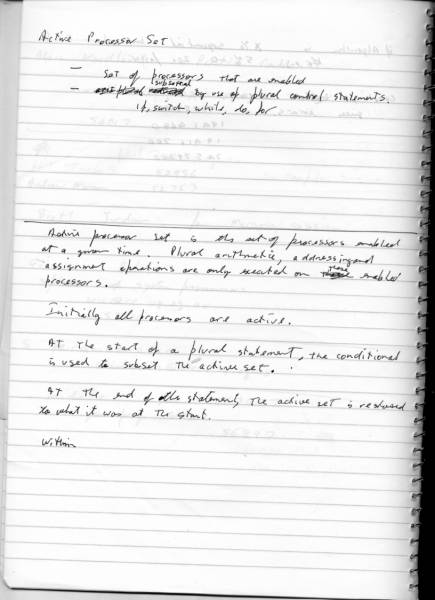 Active Processor Set
— Set of processors that are enabled
— subseted by use of plural control statements.
if, switch, while, do, for
Active processor set is the set of processors enabled
at a given time. Plural arithmetic, addressing and
assignment operations are only executed on these enabled
processors.
Initially all processors are active.
At the start of a plural statement, the conditional
is used to subset the active set.
At the end of the statement, the active set is restored
to what it was at the start.
Within